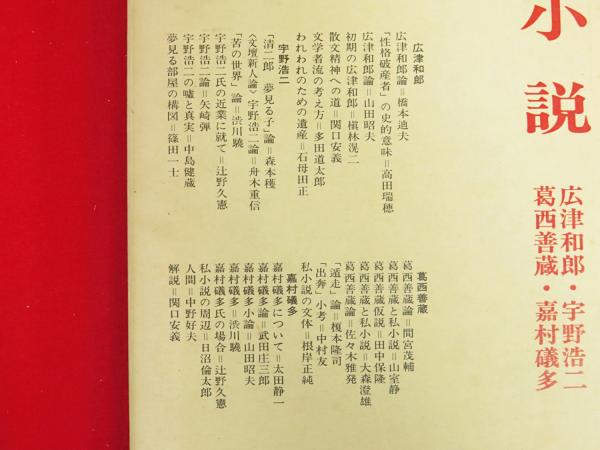 小説
広津和郎・宇野浩二
葛西善蔵・嘉村礒多
広津和郎
広津和郎論=橋本迪夫
「性格破産者」の史的意味=高田瑞穂
広津和郎論=山田昭夫
初期の広津和郎=槇林滉二
散文精神への道=関口安義
文学者流の考え方=多田道太郎
われわれのための遺産=石母田正
宇野浩二
「清二郎 夢見る子」論=森本穫
〈文壇新人論〉宇野浩二論=舟木重信
「苦の世界」論=渋川驍
宇野浩二氏の近業に就て=辻野久憲
宇野浩二論=矢崎弾
宇野浩二の嘘と真実=中島健蔵
夢見る部屋の構図=篠田一士
葛西善蔵
葛西善蔵論=間宮茂輔
葛西善蔵と私小説=山室静
葛西善蔵仮説=田中保隆
葛西善蔵と私小説=大森澄雄
葛西善蔵論=佐々木雅発
「遁走」論=榎本隆司
「出奔」小考=中村友
私小説の文体=根岸正純
嘉村礒多
嘉村礒多について=太田静一
嘉村礒多論=武田庄三郎
嘉村礒多小論=山田昭夫
嘉村礒多=渋川驍
嘉村礒多氏の場合=辻野久憲
私小説の周辺=日沼倫太郎
人間=中野好夫
解説=関口安義